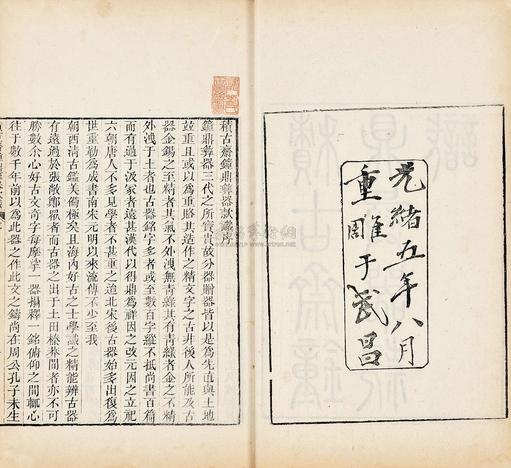 光緒五年八月
重雕于武昌
積古齋鐘鼎彝器款識序
鐘鼎彝器三代之所寶貴故分器贈器皆以是為先直與土地
並重且或以為重賂其造作之精文字之古非後人所能及古
器金錫之至精者其氣不外洩無青綠其有青綠者金之不精
外洩于土者也古器銘字多者或至數百字縱不抵尚書百篇
而有過于汲冢者遠甚漢代以得鼎為祥因之改元因之立祀
六朝唐人不多見學者不甚重之迨北宋後古器始多出復為
世重勒為成書南宋元明以來流傳不少至我
朝西清古鑑美備極矣且海內好古之士學識之精能辨古器
有遠過於張敞鄭眾者而古器之出于土田榛莽間者亦不可
勝數余心好古文奇字每摩挲一器搨釋一銘俯仰之間輒心
往于數千年前以為此器之作此文之鑄尚在周公孔子未生